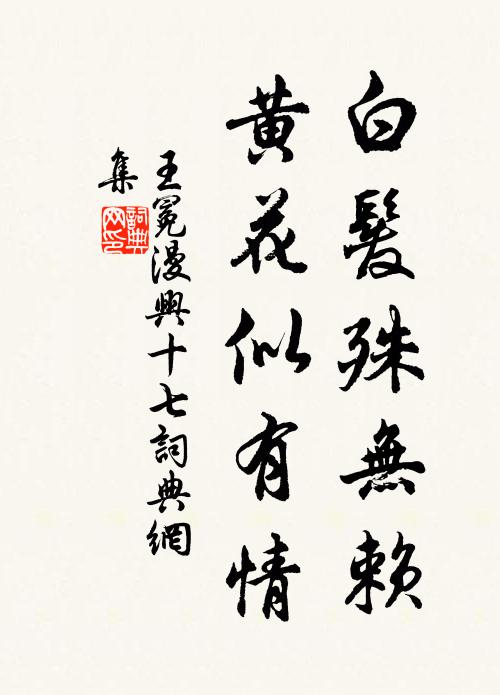 白髮殊無賴
黄花似有情
王冕漫興十七詞典網
集
詞典
网印